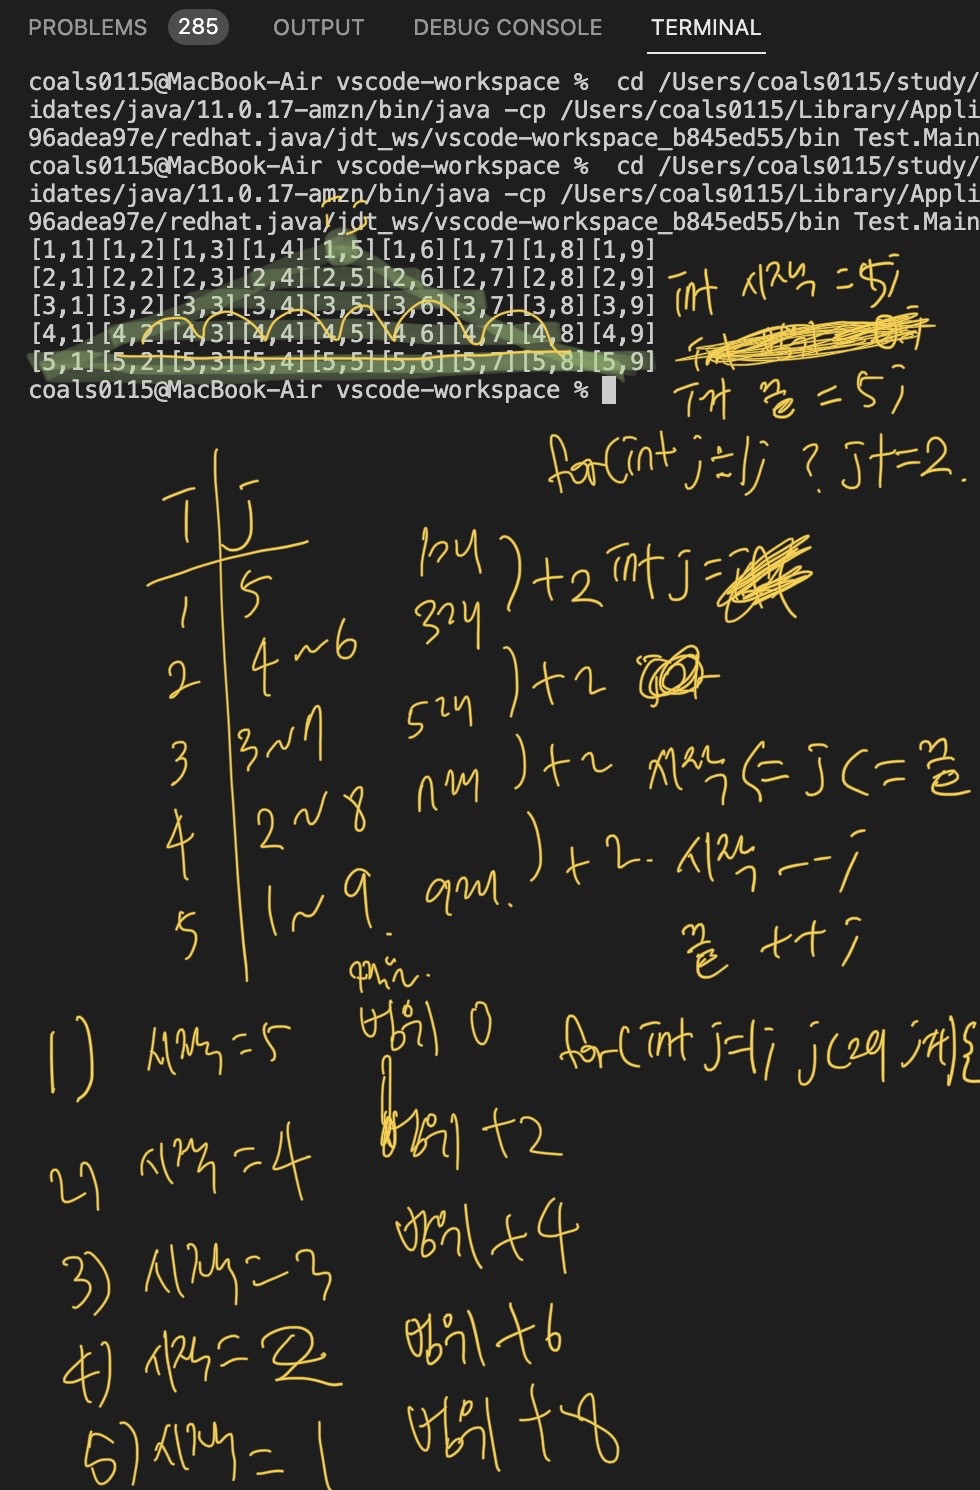 PROBLEMS 285 OUTPUT DEBUG CONSOLE TERMINAL
coals0115@MacBook-Air vscode-workspace %  cd /Users/coals0115/study/
idates/java/11.0.17-amzn/bin/java -cp /Users/coals0115/Library/Appli
96adea97e/redhat.java/jdt_ws/vscode-workspace_b845ed55/bin Test.Main
coals0115@MacBook-Air vscode-workspace %  cd /Users/coals0115/study/
idates/java/11.0.17-amzn/bin/java -cp /Users/coals0115/Library/Appli
96adea97e/redhat.java/jdt_ws/vscode-workspace_b845ed55/bin Test.Main
i j
[1,1][1,2][1,3][1,4][1,5][1,6][1,7][1,8][1,9]
[2,1][2,2][2,3][2,4][2,5][2,6][2,7][2,8][2,9]
[3,1][3,2][3,3][3,4][3,5][3,6][3,7][3,8][3,9]
[4,1][4,2][4,3][4,4][4,5][4,6][4,7][4,8][4,9]
[5,1][5,2][5,3][5,4][5,5][5,6][5,7][5,8][5,9]
coals0115@MacBook-Air vscode-workspace %
int 시작 = 5;
int 끝 = 5;
for(int j=1; ? j+=2.
i j
1 5 1개
2 4~6 3개 ) +2 int j =
3 3~7 5개 ) +2
4 2~8 7개 ) +2 시작 <= j <= 끝
5 1~9. 9개. ) +2. 시작 --;
끝 ++;
1) 시작 = 5 범위 0 for(int j=1;
2) 시작 = 4 범위 +2
3) 시작 = 3 범위 +4
4) 시작 = 2 범위 +6
5) 시작 = 1 범위 +8